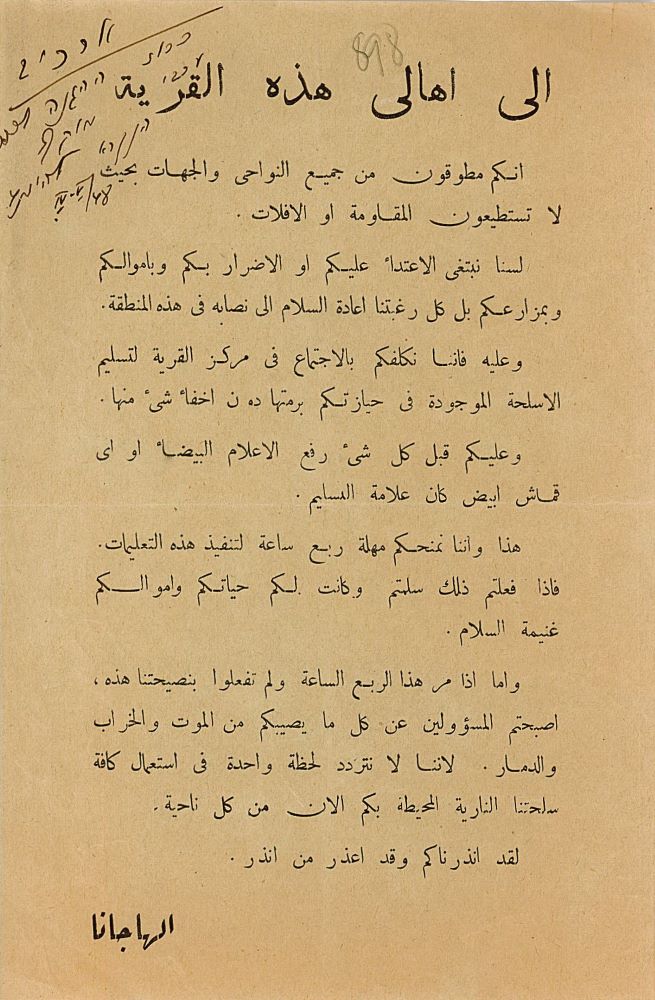 898
الى اهالى هذه القرية
انكم مطوقون من جميع النواحى والجهات بحيث
لا تستطيعون المقاومة او الافلات .
لسنا نبتغى الاعتداء عليكم او الاضرار بكم وباموالكم
وبمزارعكم بل كل رغبتنا اعادة السلام الى نصابه فى هذه المنطقة .
وعليه فاننا نكلفكم بالاجتماع فى مركز القرية لتسليم
الاسلحة الموجودة فى حيازتكم برمتها ده ن اخفاء شىء منها .
وعليكم قبل كل شىء رفع الاعلام البيضاء او اى
قماش ابيض كان علامة التسليم .
هذا واننا نمنحكم مهلة ربع ساعة لتنفيذ هذه التعليمات .
فاذا فعلتم ذلك سلمتم وكانت لكم حياتكم واموالكم
غنيمة السلام .
واما اذا مر هذا الربع الساعة ولم تفعلوا بنصيحتنا هذه ،
اصبحتم المسؤولين عن كل ما يصيبكم من الموت والخراب
والدمار . لاننا لا نتردد لحظة واحدة فى استعمال كافة
سلحتنا النارية المحيطة بكم الان من كل ناحية .
لقد انذرناكم وقد اعذر من انذر .
الهاجانا